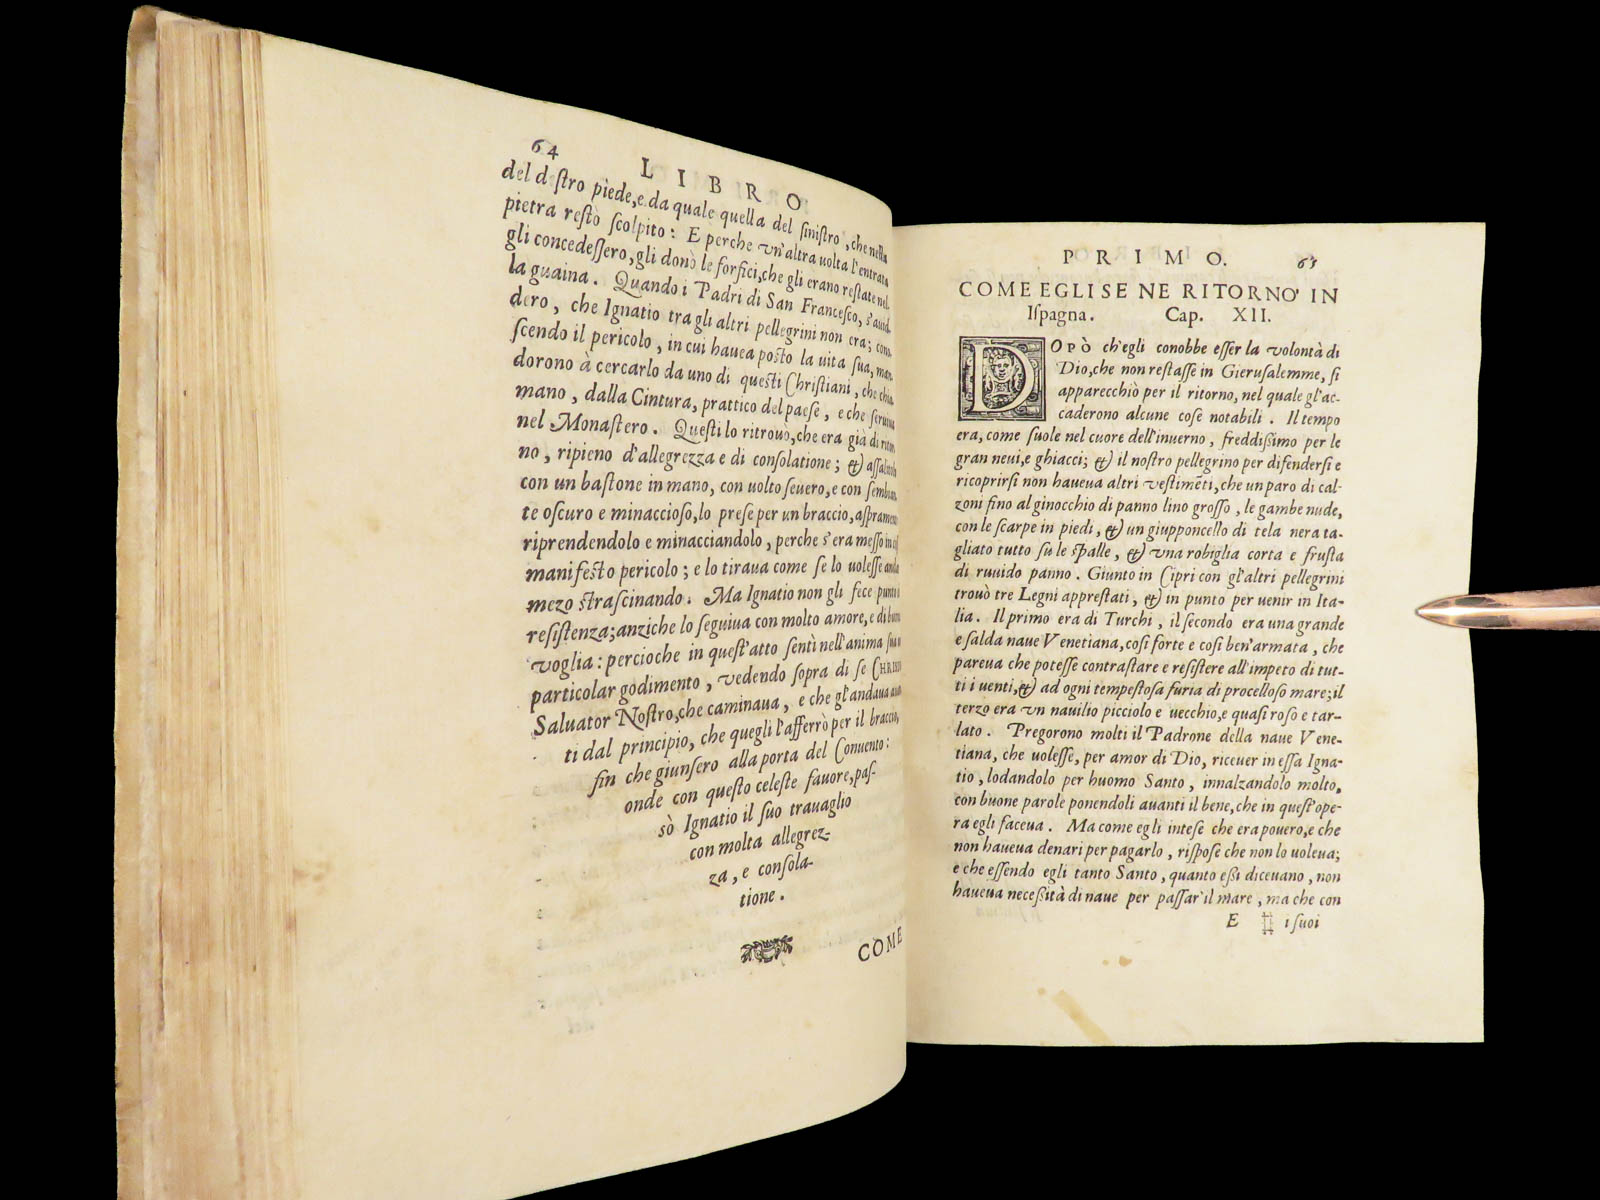 64
LIBRO
del destro piede, e da quale quella del sinistro, che nella
pietra restò scolpito: E perche vn'altra uolta l'entrata
gli concedessero, gli donò le forfici, che gli erano restate nel-
la guaina. Quando i Padri di San Francesco, s'auid-
dero, che Ignatio tra gli altri pellegrini non era; cono-
scendo il pericolo, in cui hauea posto la uita sua, man-
dorono à cercarlo da uno di questi Christiani, che chia-
mano, dalla Cintura, prattico del paese, e che seruiua
nel Monastero. Questi lo ritrouò, che era già di ritor-
no, ripieno d'allegrezza e di consolatione; & assalitolo
con un bastone in mano, con uolto seuero, e con sembian-
te oscuro e minaccioso, lo prese per un braccio, aspramente
riprendendolo e minacciandolo, perche s'era messo in
manifesto pericolo; e lo tiraua come se lo uolesse
mezo strascinando. Ma Ignatio non gli fece punto di
resistenza; anziche lo seguiua con molto amore, e di buona
voglia: percioche in quest'atto sentì nell'anima sua un
particolar godimento, vedendo sopra di se CHRISTO
Saluator Nostro, che caminaua, e che gl'andaua auan-
ti dal principio, che quegli l'afferrò per il braccio,
fin che giunsero alla porta del Conuento:
onde con questo celeste fauore, pas-
sò Ignatio il suo trauaglio
con molta allegrez-
za, e consola-
tione.
COME
PRIMO. 65
COME EGLI SE NE RITORNO' IN
Ispagna. Cap. XII.
DOPÒ ch'egli conobbe esser la volontà di
Dio, che non restasse in Gierusalemme, si
apparecchiò per il ritorno, nel quale gl'ac-
caderono alcune cose notabili. Il tempo
era, come suole nel cuore dell'inuerno, freddißimo per le
gran neui, e ghiacci; & il nostro pellegrino per difendersi e
ricoprirsi non haueua altri vestimẽti, che un paro di cal-
zoni fino al ginocchio di panno lino grosso, le gambe nude,
con le scarpe in piedi, & un giupponcello di tela nera ta-
gliato tutto sù le spalle, & vna robiglia corta e frusta
di ruuido panno. Giunto in Cipri con gl'altri pellegrini
trouò tre Legni apprestati, & in punto per uenir in Ita-
lia. Il primo era di Turchi, il secondo era una grande
e salda naue Venetiana, così forte e così ben'armata, che
pareua che potesse contrastare e resistere all'impeto di tut-
ti i uenti, & ad ogni tempestosa furia di procelloso mare; il
terzo era vn nauilio picciolo e uecchio, e quasi roso e tar-
lato. Pregorono molti il Padrone della naue Vene-
tiana, che uolesse, per amor di Dio, riceuer in essa Igna-
tio, lodandolo per huomo Santo, innalzandolo molto,
con buone parole ponendoli auanti il bene, che in quest'ope-
ra egli faceua. Ma come egli intese che era pouero, e che
non haueua denari per pagarlo, rispose che non lo uoleua;
e che essendo egli tanto Santo, quanto eßi diceuano, non
haueua neceßità di naue per passar' il mare, ma che con
E i suoi